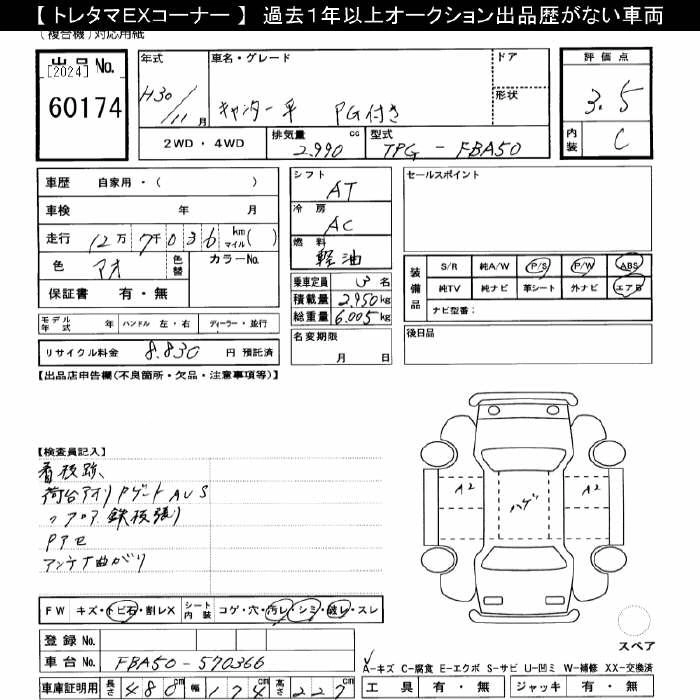 【 トレタマEXコーナー 】 過去１年以上オークション出品歴がない車両
(複合機)対応用紙
出品 No.
[2024]
60174
年式
H30/11月
車名・グレード
キャンター 平 PG付き
ドア
形状
2WD ・ 4WD
排気量 cc
2.990
型式
TPG - FBA50
評価点
3.5
内装
C
車歴 自家用・( )
車検 年 月
走行 12万 7千 0 3 6 km マイル( )
色 アオ 色替 カラーNo.
保証書 有・無
モデル年式 年 ハンドル 左・右 ディーラー・並行
リサイクル料金 8.830 円 預託済
シフト
AT
冷房
AC
燃料
軽油
乗車定員 3 名
積載量 2.950 kg
総重量 6.005 kg
名変期限
月 日
セールスポイント
装備品
S/R 純A/W P/S P/W ABS
純TV 純ナビ 革シート 外ナビ エアB
ナビ型番:
後日品
【出品店申告欄(不良箇所・欠品・注意事項等)】
【検査員記入】
看板跡、
荷台アオリ Pゲート AUS
〃 フロア 鉄板張り
Pアセ
アンテナ曲がり
A2
ハゲ
A2
スペア
FW キズ・トビ石・割レX シート内装 コゲ・穴・汚レ・シミ・破レ・スレ
登録 No.
車台 No. FBA50-570366
車庫証明用 長さ 480cm 幅 174cm 高さ 227cm
A-キズ C-腐食 E-エクボ S-サビ U-凹ミ W-補修 XX-交換済
工具 有・無 ジャッキ 有・無